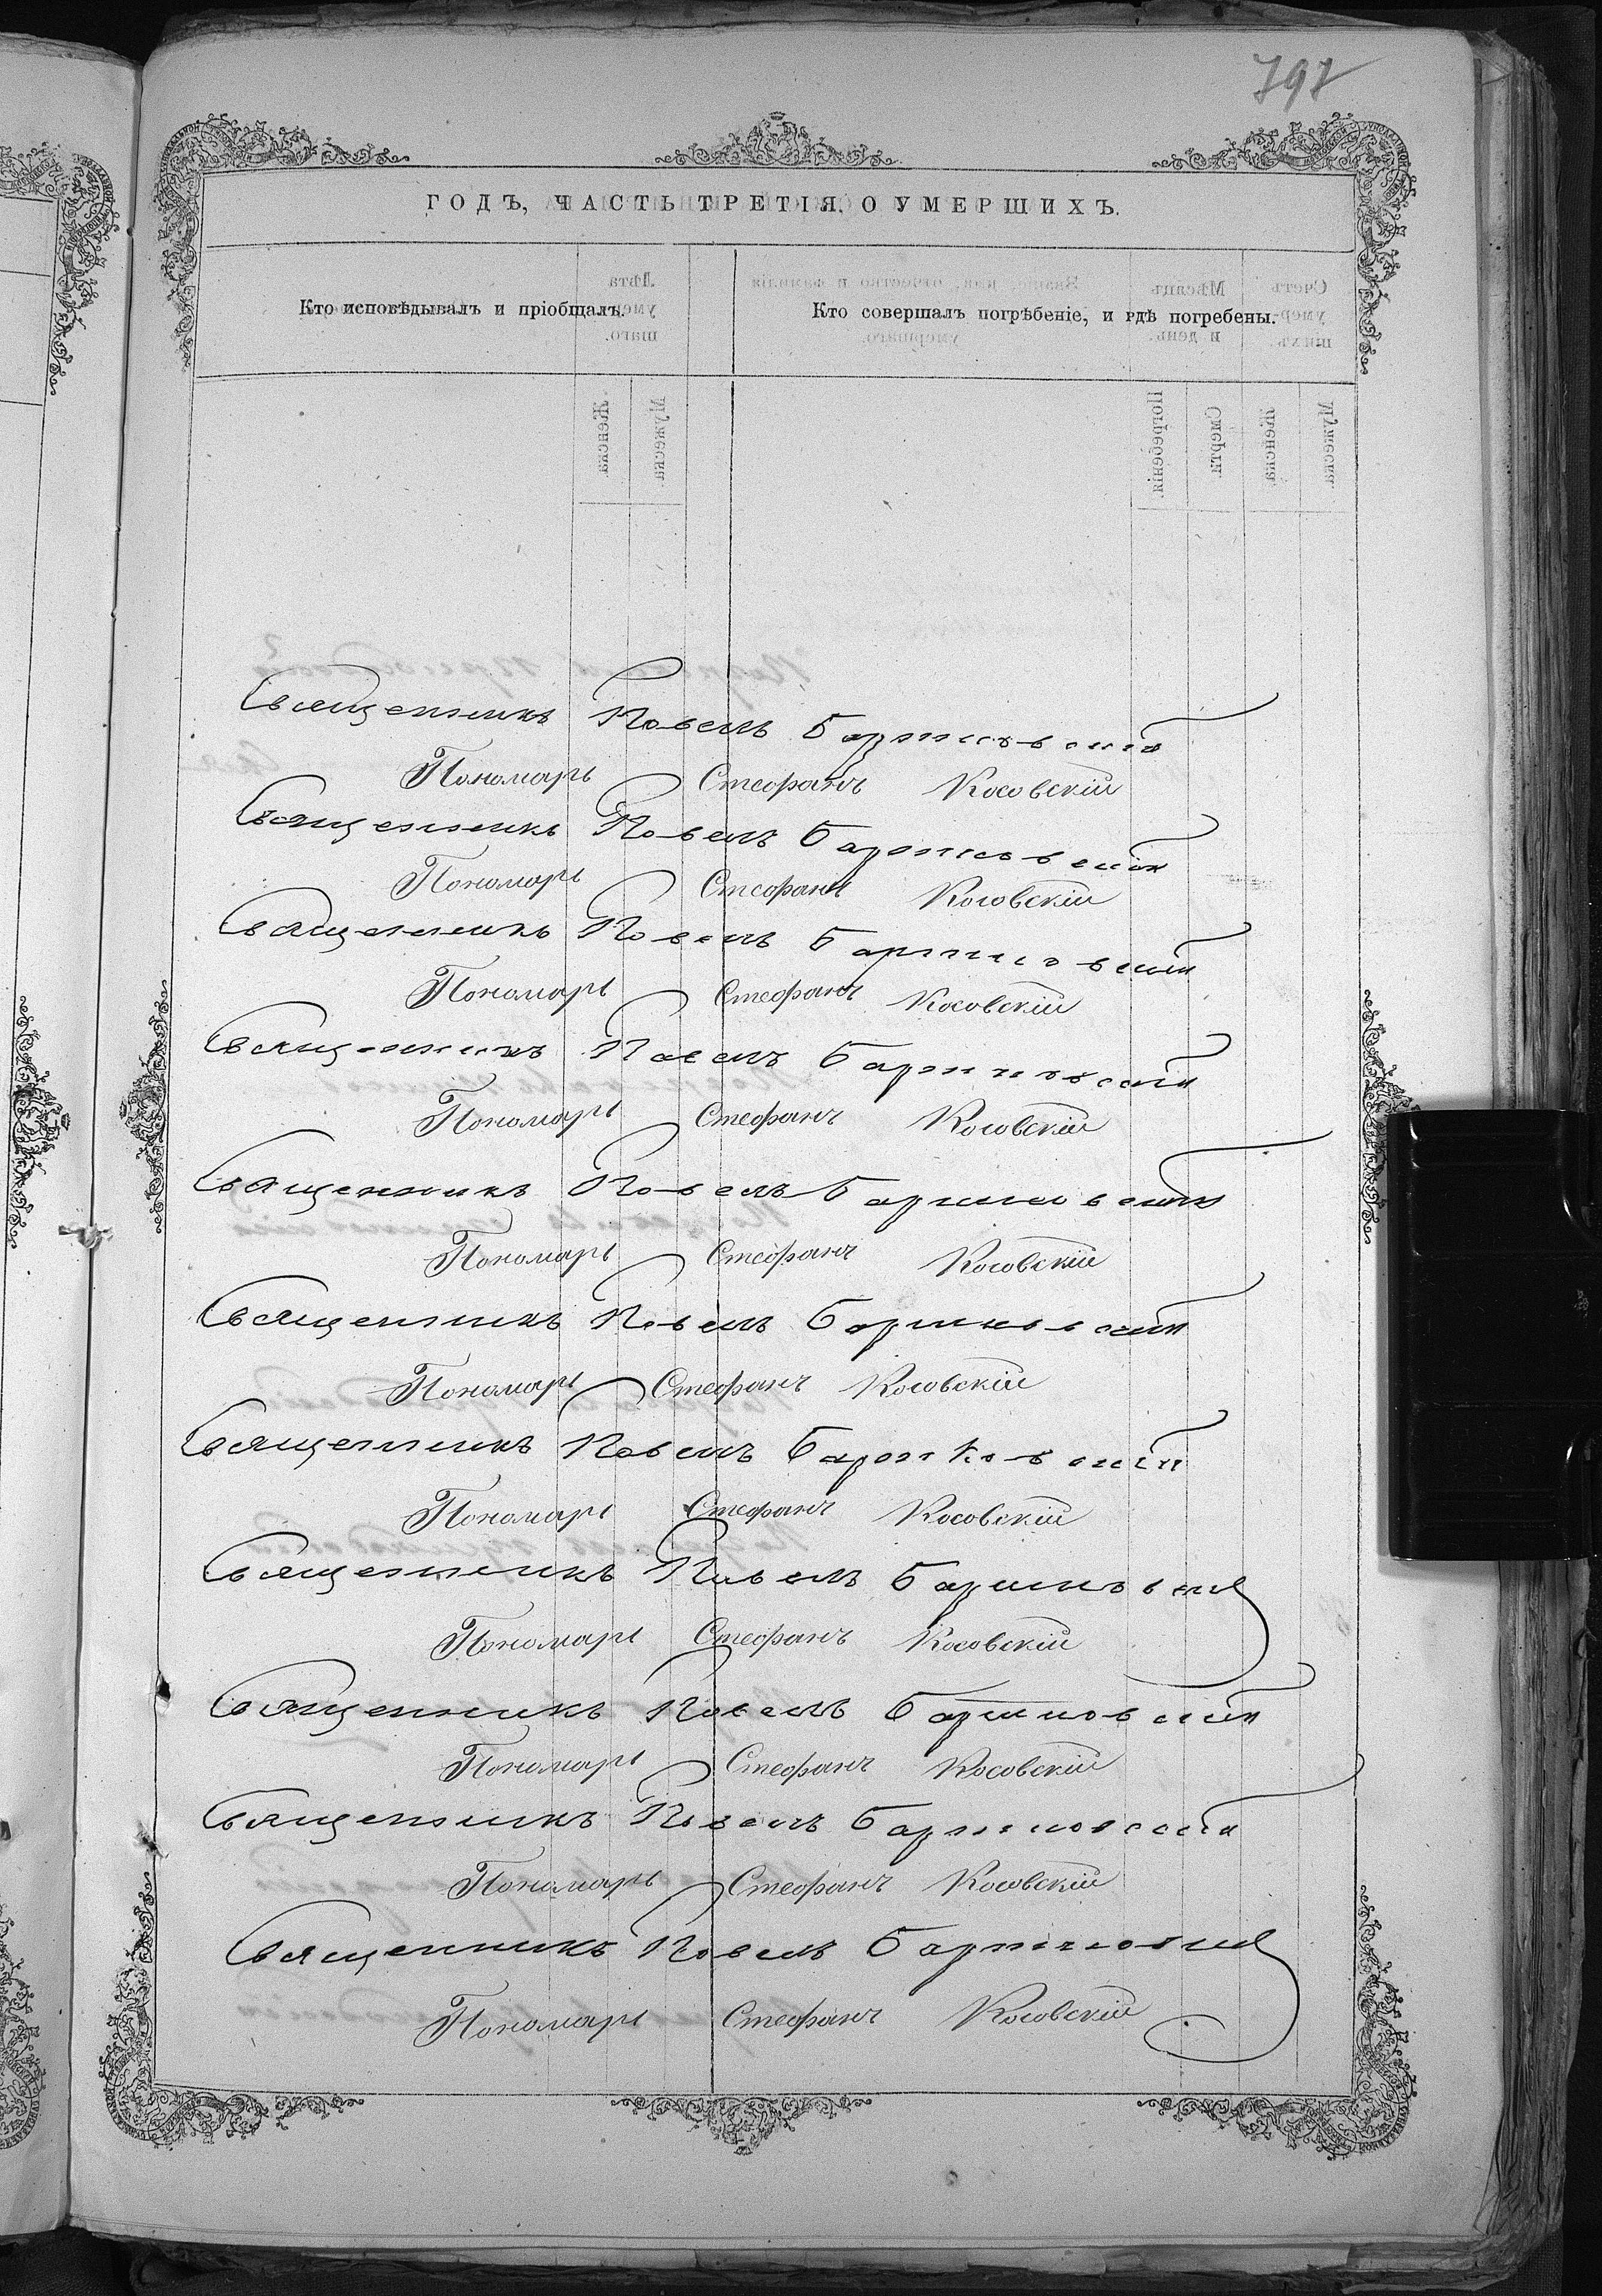 797
ГОДЪ, ЧАСТЬ ТРЕТІЯ, О УМЕРШИХЪ.
Кто исповѣдывалъ и пріобщалъ. Кто совершалъ погрѣбеніе, и гдѣ погребены.
Священникъ Павелъ Бартковскій
Пономарь Стефанъ Косовскій
Священникъ Павелъ Бартковскій
Пономарь Стефанъ Косовскій
Священникъ Павелъ Бартковскій
Пономарь Стефанъ Косовскій
Священникъ Павелъ Бартковскій
Пономарь Стефанъ Косовскій
Священникъ Павелъ Бартковскій
Пономарь Стефанъ Косовскій
Священникъ Павелъ Бартковскій
Пономарь Стефанъ Косовскій
Священникъ Павелъ Бартковскій
Пономарь Стефанъ Косовскій
Священникъ Павелъ Бартковскій
Пономарь Стефанъ Косовскій
Священникъ Павелъ Бартковскій
Пономарь Стефанъ Косовскій
Священникъ Павелъ Бартковскій
Пономарь Стефанъ Косовскій
Священникъ Павелъ Бартковскій
Пономарь Стефанъ Косовскій